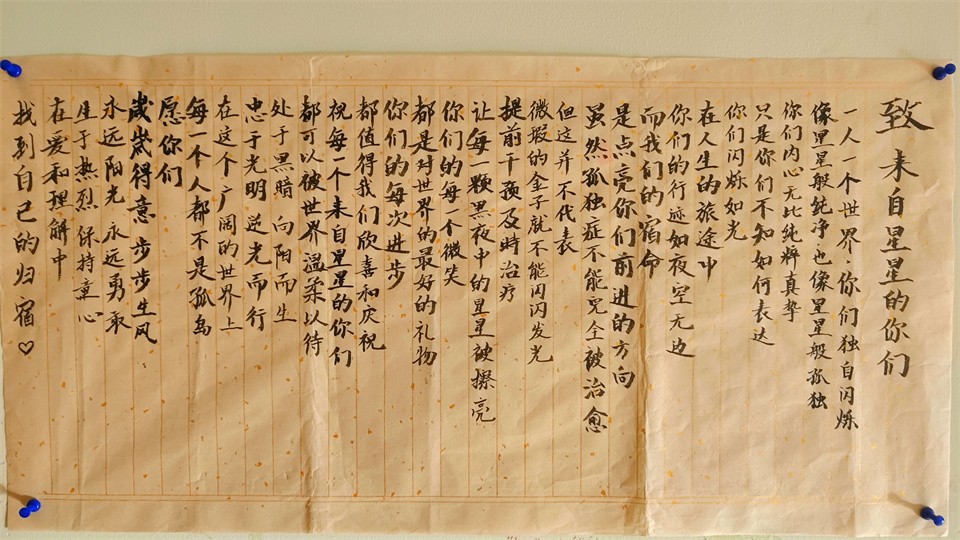 致 来自星星的你们
一人一个世界·你们独自闪烁
像星星般纯净·也像星星般孤独
你们内心无比纯粹真挚
只是你们不知如何表达
你们闪烁如光
在人生的旅途中
你们的行迹如夜空无边
而我们的宿命
是点亮你们前进的方向
虽然孤独症不能完全被治愈
但这并不代表
微瑕的金子就不能闪闪发光
提前干预及時治疗
让每一颗黑夜中的星星被擦亮
你们的每一个微笑
都是对世界的最好的礼物
你们的每次进步
都值得我们欣喜和庆祝
祝每一个来自星星的你们
都可以被世界温柔以待
处于黑暗 向阳而生
忠于光明 逆光而行
在这个广阔的世界上
每一个人都不是孤岛
愿你们
歲歲得意 步步生风
永远阳光 永远勇敢
生于热烈 保持童心
在爱和理解中
找到自己的归宿♡